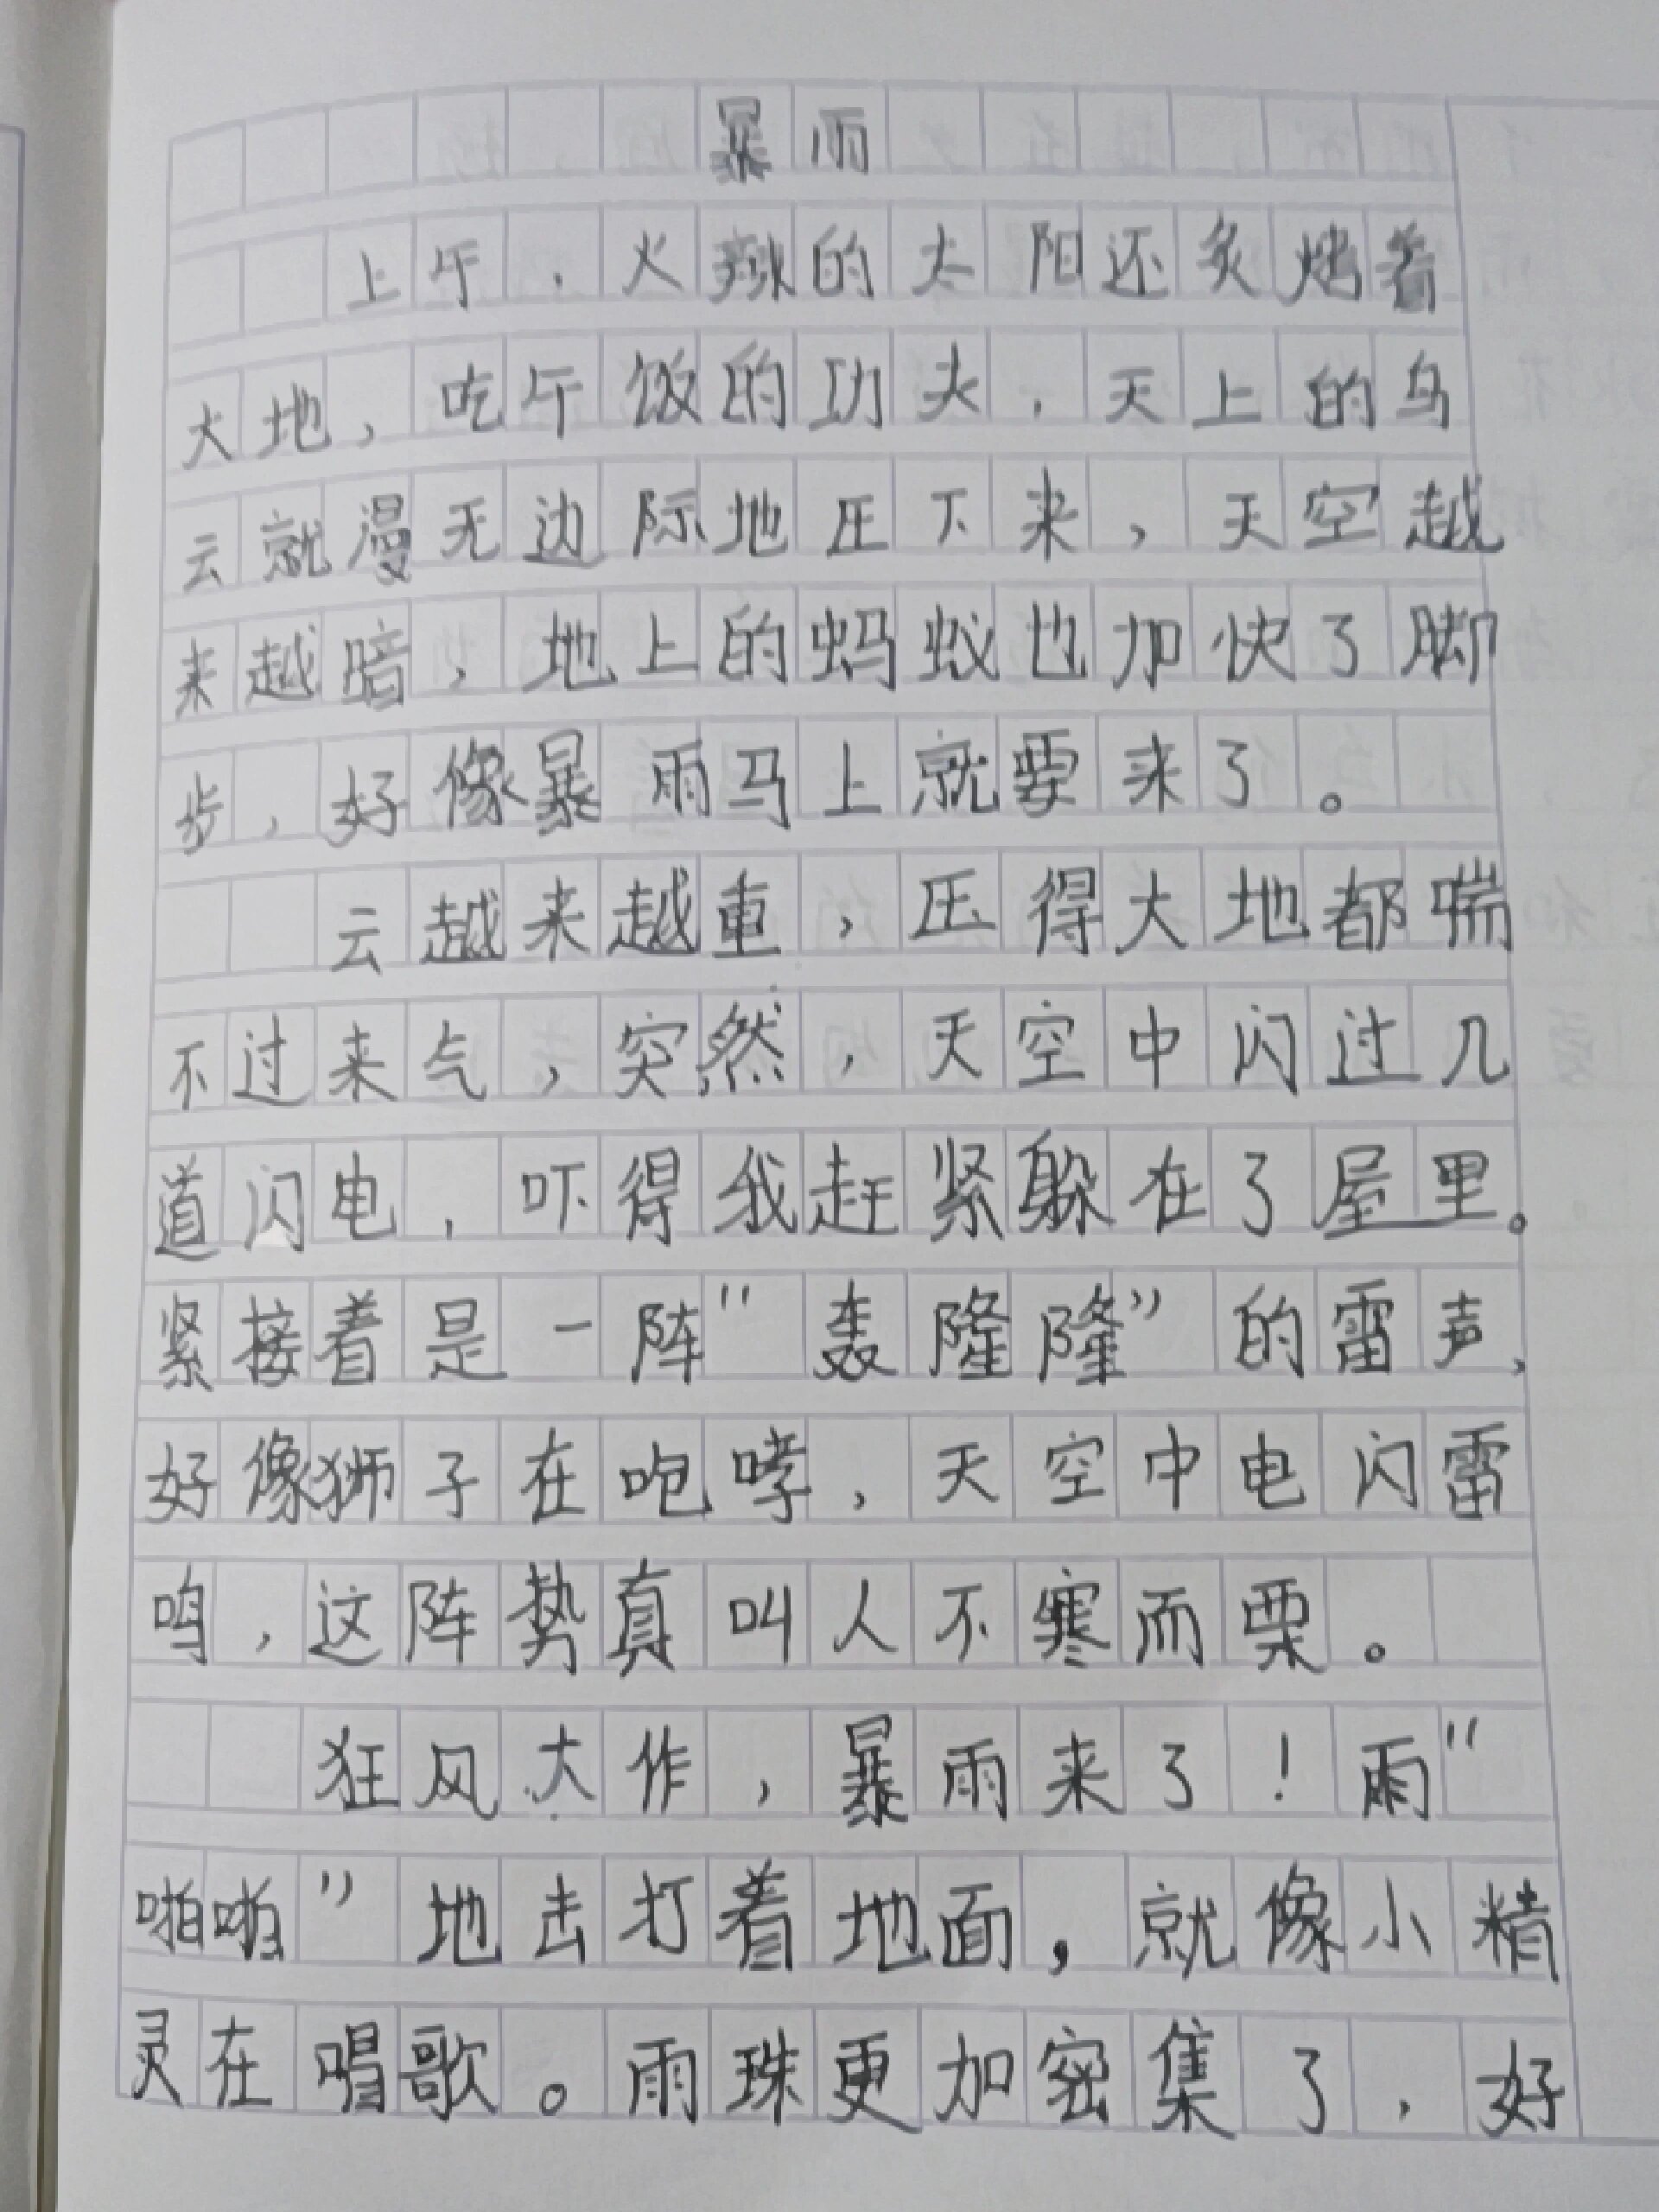 暴雨
上午，火辣的太阳还炙烤着
大地，吃午饭的功夫，天上的乌
云就漫无边际地压下来，天空越
来越暗，地上的蚂蚁也加快了脚
步，好像暴雨马上就要来了。
云越来越重，压得大地都喘
不过来气，突然，天空中闪过几
道闪电，吓得我赶紧躲在了屋里。
紧接着是一阵“轰隆隆”的雷声，
好像狮子在咆哮，天空中电闪雷
鸣，这阵势真叫人不寒而栗。
狂风大作，暴雨来了！雨“
啪啪”地击打着地面，就像小精
灵在唱歌。雨珠更加密集了，好